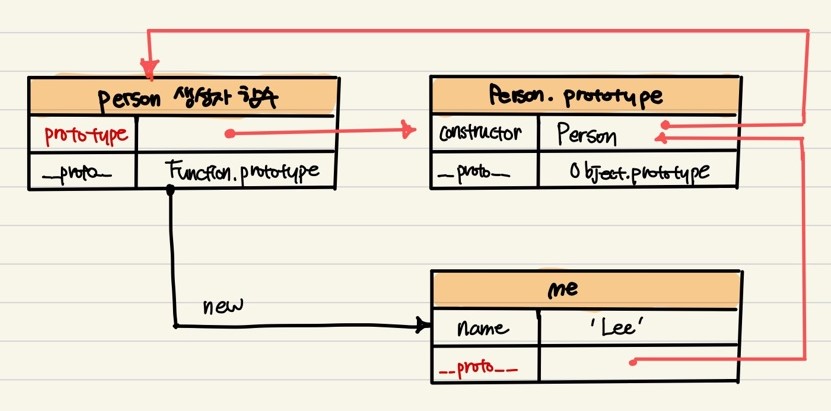 person 생성자 함수
prototype
__proto__ Function.prototype
Person.prototype
constructor Person
__proto__ Object.prototype
new
me
name 'Lee'
__proto__